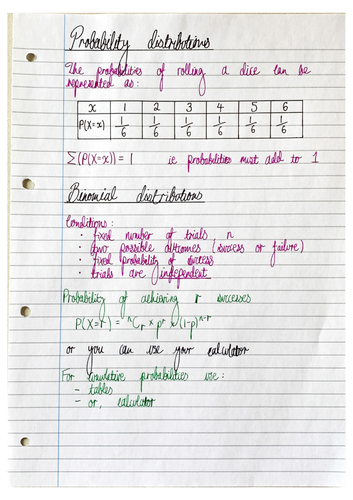 Probability distributions
The probabilities of rolling a dice can be
represented as:
x 1 2 3 4 5 6
P(X=x) 1/6 1/6 1/6 1/6 1/6 1/6
Σ(P(X=x)) = 1 ie probabilities must add to 1
Binomial distributions
Conditions:
• fixed number of trials n
• two possible outcomes (success or failure)
• fixed probability of success
• trials are independent
Probability of achieving r successes
P(X=r) = ⁿCᵣ × pʳ × (1-p)ⁿ⁻ʳ
or you can use your calculator
For cumulative probabilities use:
- tables
- or, calculator